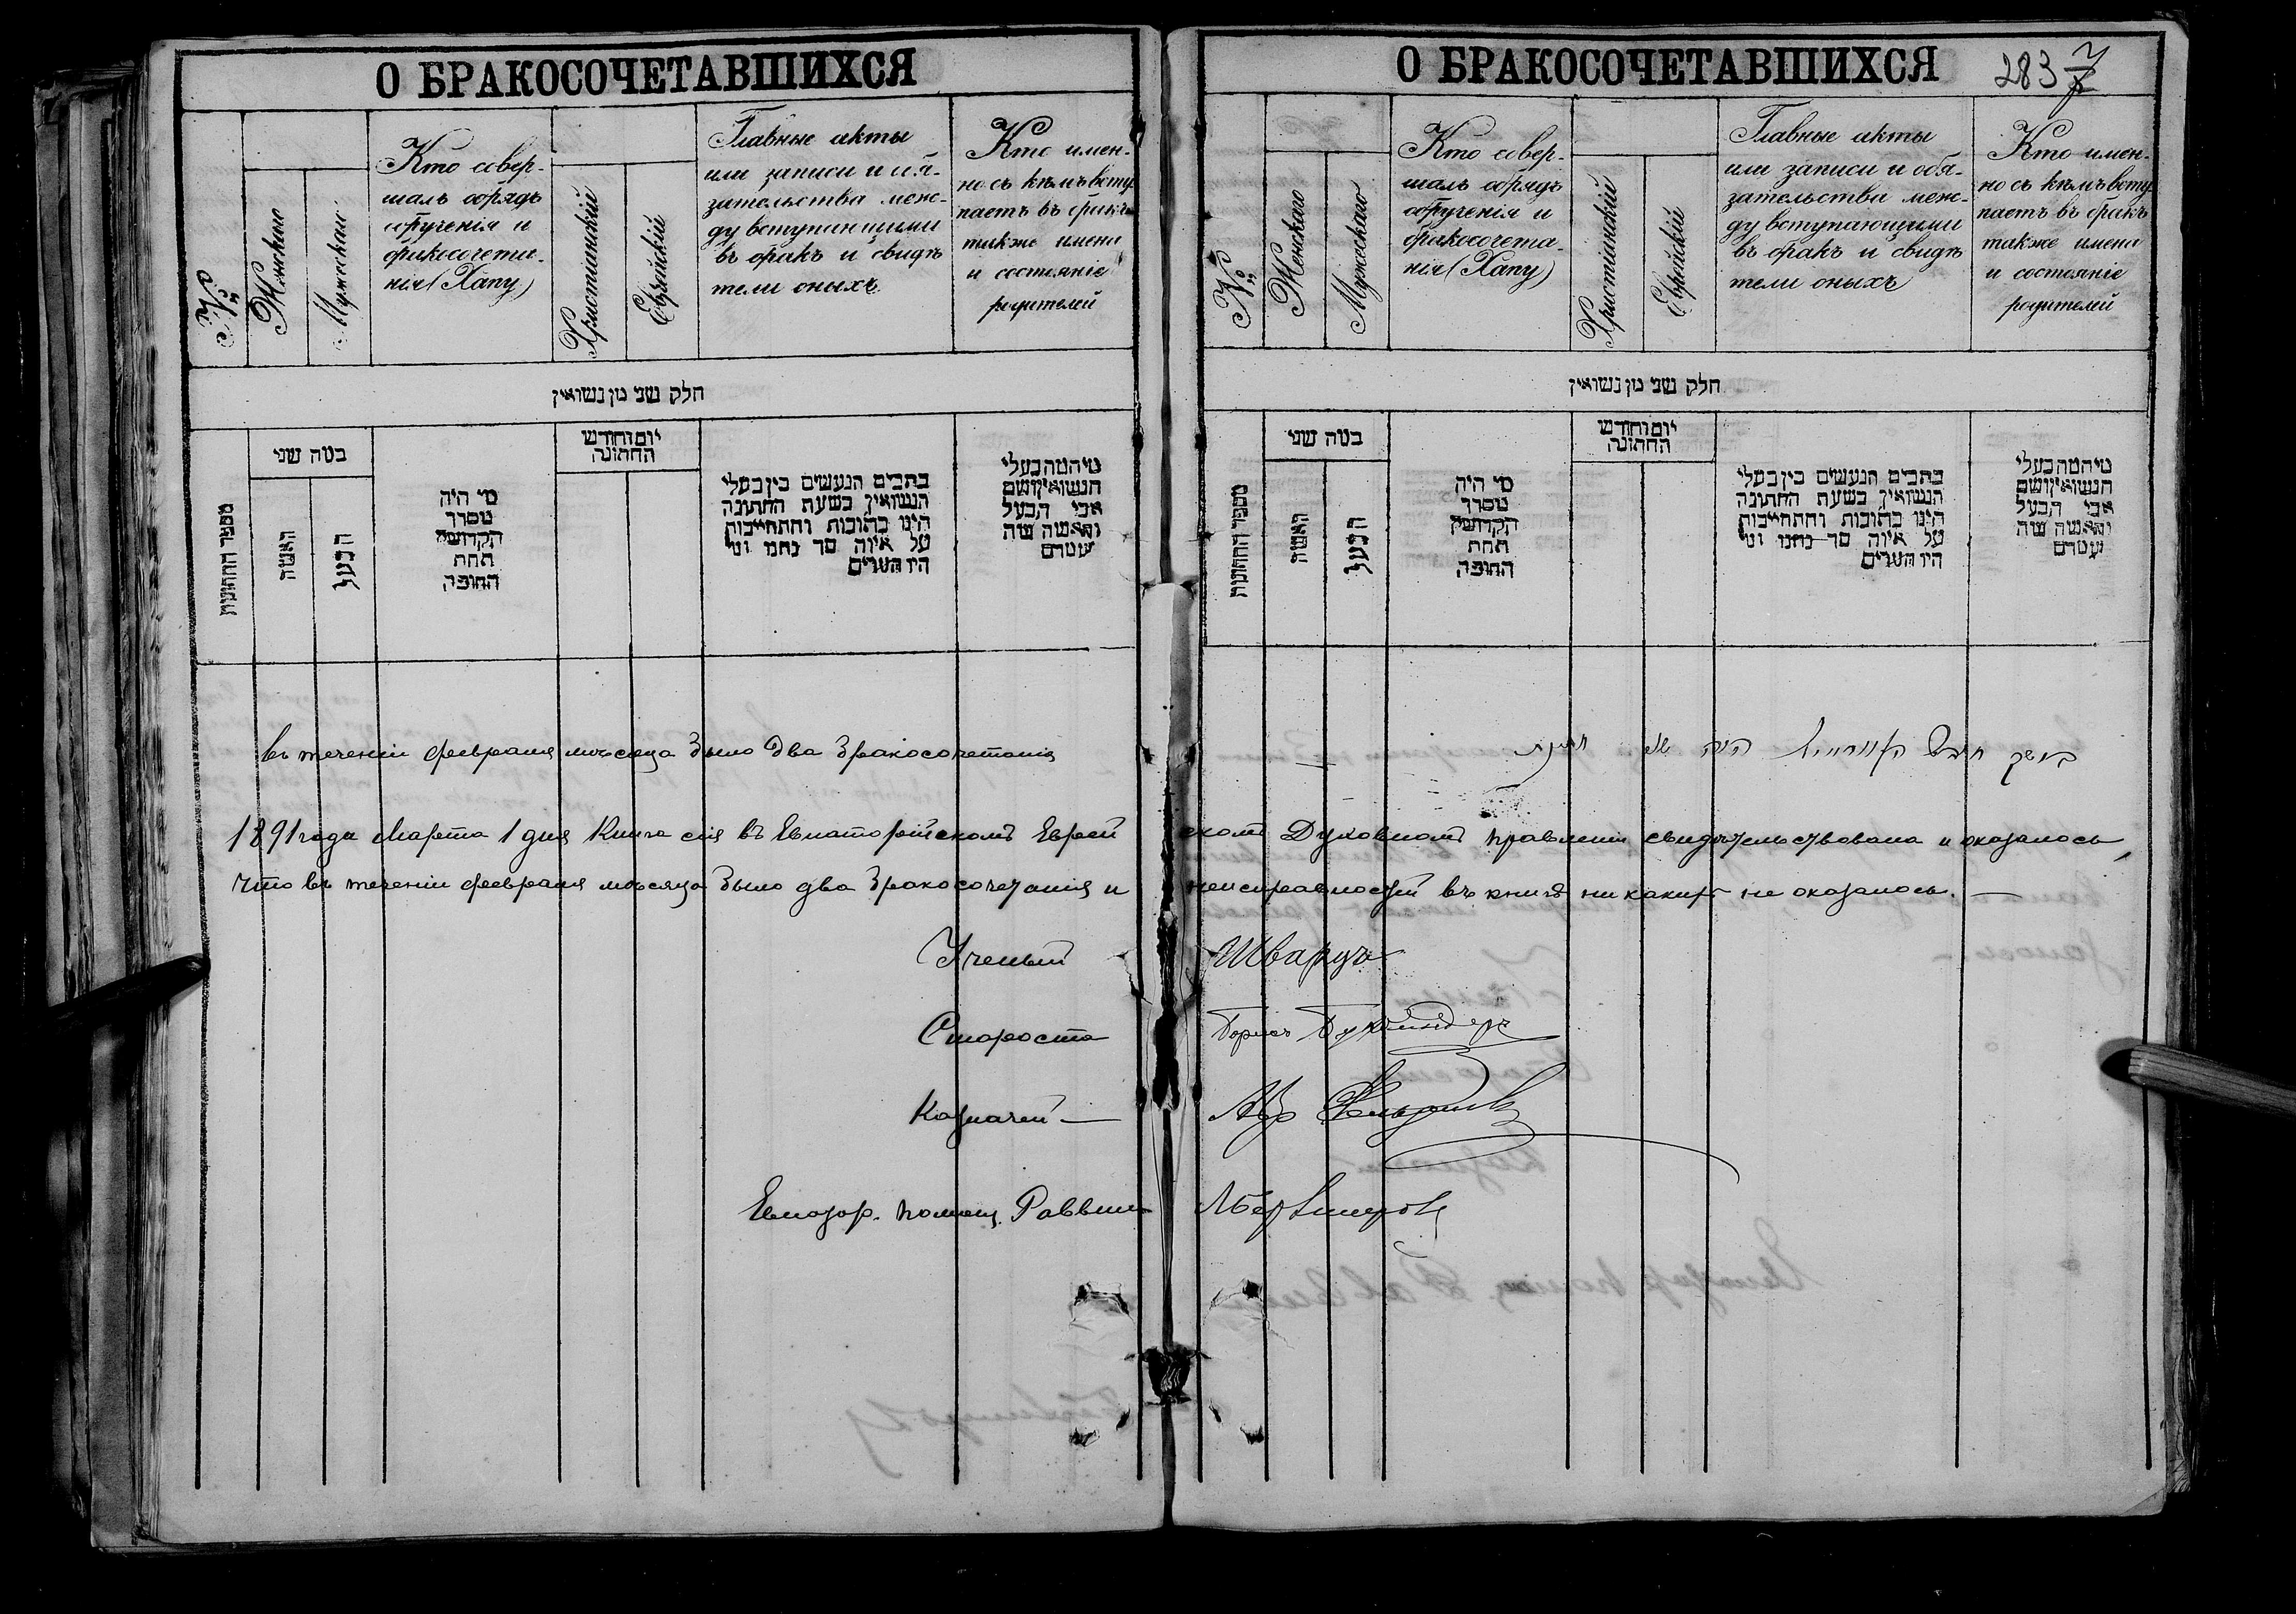 О БРАКОСОЧЕТАВШИХСЯ
№
Женскаго
Мужескаго
Кто совер-
шалъ обрядъ
обрученія и
бракосочета-
нія (Хапу)
Христіанскій
Еврейскій
Главные акты
или записи и обя-
зательства меж-
ду вступающими
въ бракъ и свидѣ
тели оныхъ
Кто имен-
но съ кѣмъ всту
паетъ въ бракъ
также имена
и состояніе
родителей
חלק שני מן נשואין
מספר החתונות
כמה שני
האשה
הבעל
מי היה
מסדר
הקדושין
תחת
החופה
יום וחודש
החתונה
כתבים הנעשים בין בעלי
הנשואין בשעת החתונה
היינו כתובות והתחייבות
על איזה סך נתנו ומי
היו העדים
מי המה בעלי
הנשואין ושם
אבי הבעל
והאשה מה
שמם
въ теченіи февраля мѣсяца было два бракосочетанія
О БРАКОСОЧЕТАВШИХСЯ
283 7
№
Женскаго
Мужескаго
Кто совер-
шалъ обрядъ
обрученія и
бракосочета-
нія (Хапу)
Христіанскій
Еврейскій
Главные акты
или записи и обя-
зательства меж-
ду вступающими
въ бракъ и свидѣ
тели оныхъ
Кто имен-
но съ кѣмъ всту
паетъ въ бракъ
также имена
и состояніе
родителей
חלק שני מן נשואין
מספר החתונות
כמה שני
האשה
הבעל
מי היה
מסדר
הקדושין
תחת
החופה
יום וחודש
החתונה
כתבים הנעשים בין בעלי
הנשואין בשעת החתונה
היינו כתובות והתחייבות
על איזה סך נתנו ומי
היו העדים
מי המה בעלי
הנשואין ושם
אבי הבעל
והאשה מה
שמם
במשך חודש היה
1891 года Марта 1 дня Книга сія въ Евпаторійскомъ Еврей скомъ Духовномъ правленіи свидѣтельствована и оказалось,
что въ теченіи февраля мѣсяца было два бракосочетанія и неисправностей въ книгѣ ни какихъ не оказалось. —
Ученый Шварцъ
Староста Борисъ
Казначей —
Евпатор. помощ. Раввина